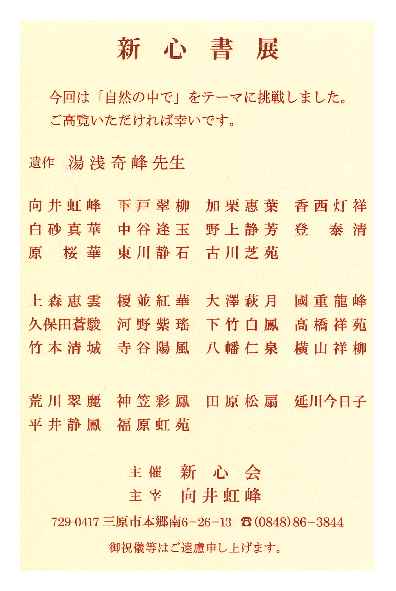 新心書展
今回は「自然の中で」をテーマに挑戦しました。
ご高覧いただければ幸いです。
遺作 湯浅奇峰先生
向井虹峰 下戸翠柳 加栗惠葉 香西灯祥
白砂真華 中谷逢玉 野上静芳 登 泰清
原 桜華 東川静石 古川芝苑
上森恵雲 榎並紅華 大澤萩月 國重龍峰
久保田蒼駿 河野紫瑤 下竹白鳳 高橋祥苑
竹本清城 寺谷陽風 八幡仁泉 横山祥柳
荒川翠麗 神笠彩鳳 田原松扇 延川今日子
平井静鳳 福原虹苑
主催 新心会
主宰 向井虹峰
729-0417 三原市本郷南6-26-13 ☎(0848)86-3844
御祝儀等はご遠慮申し上げます。